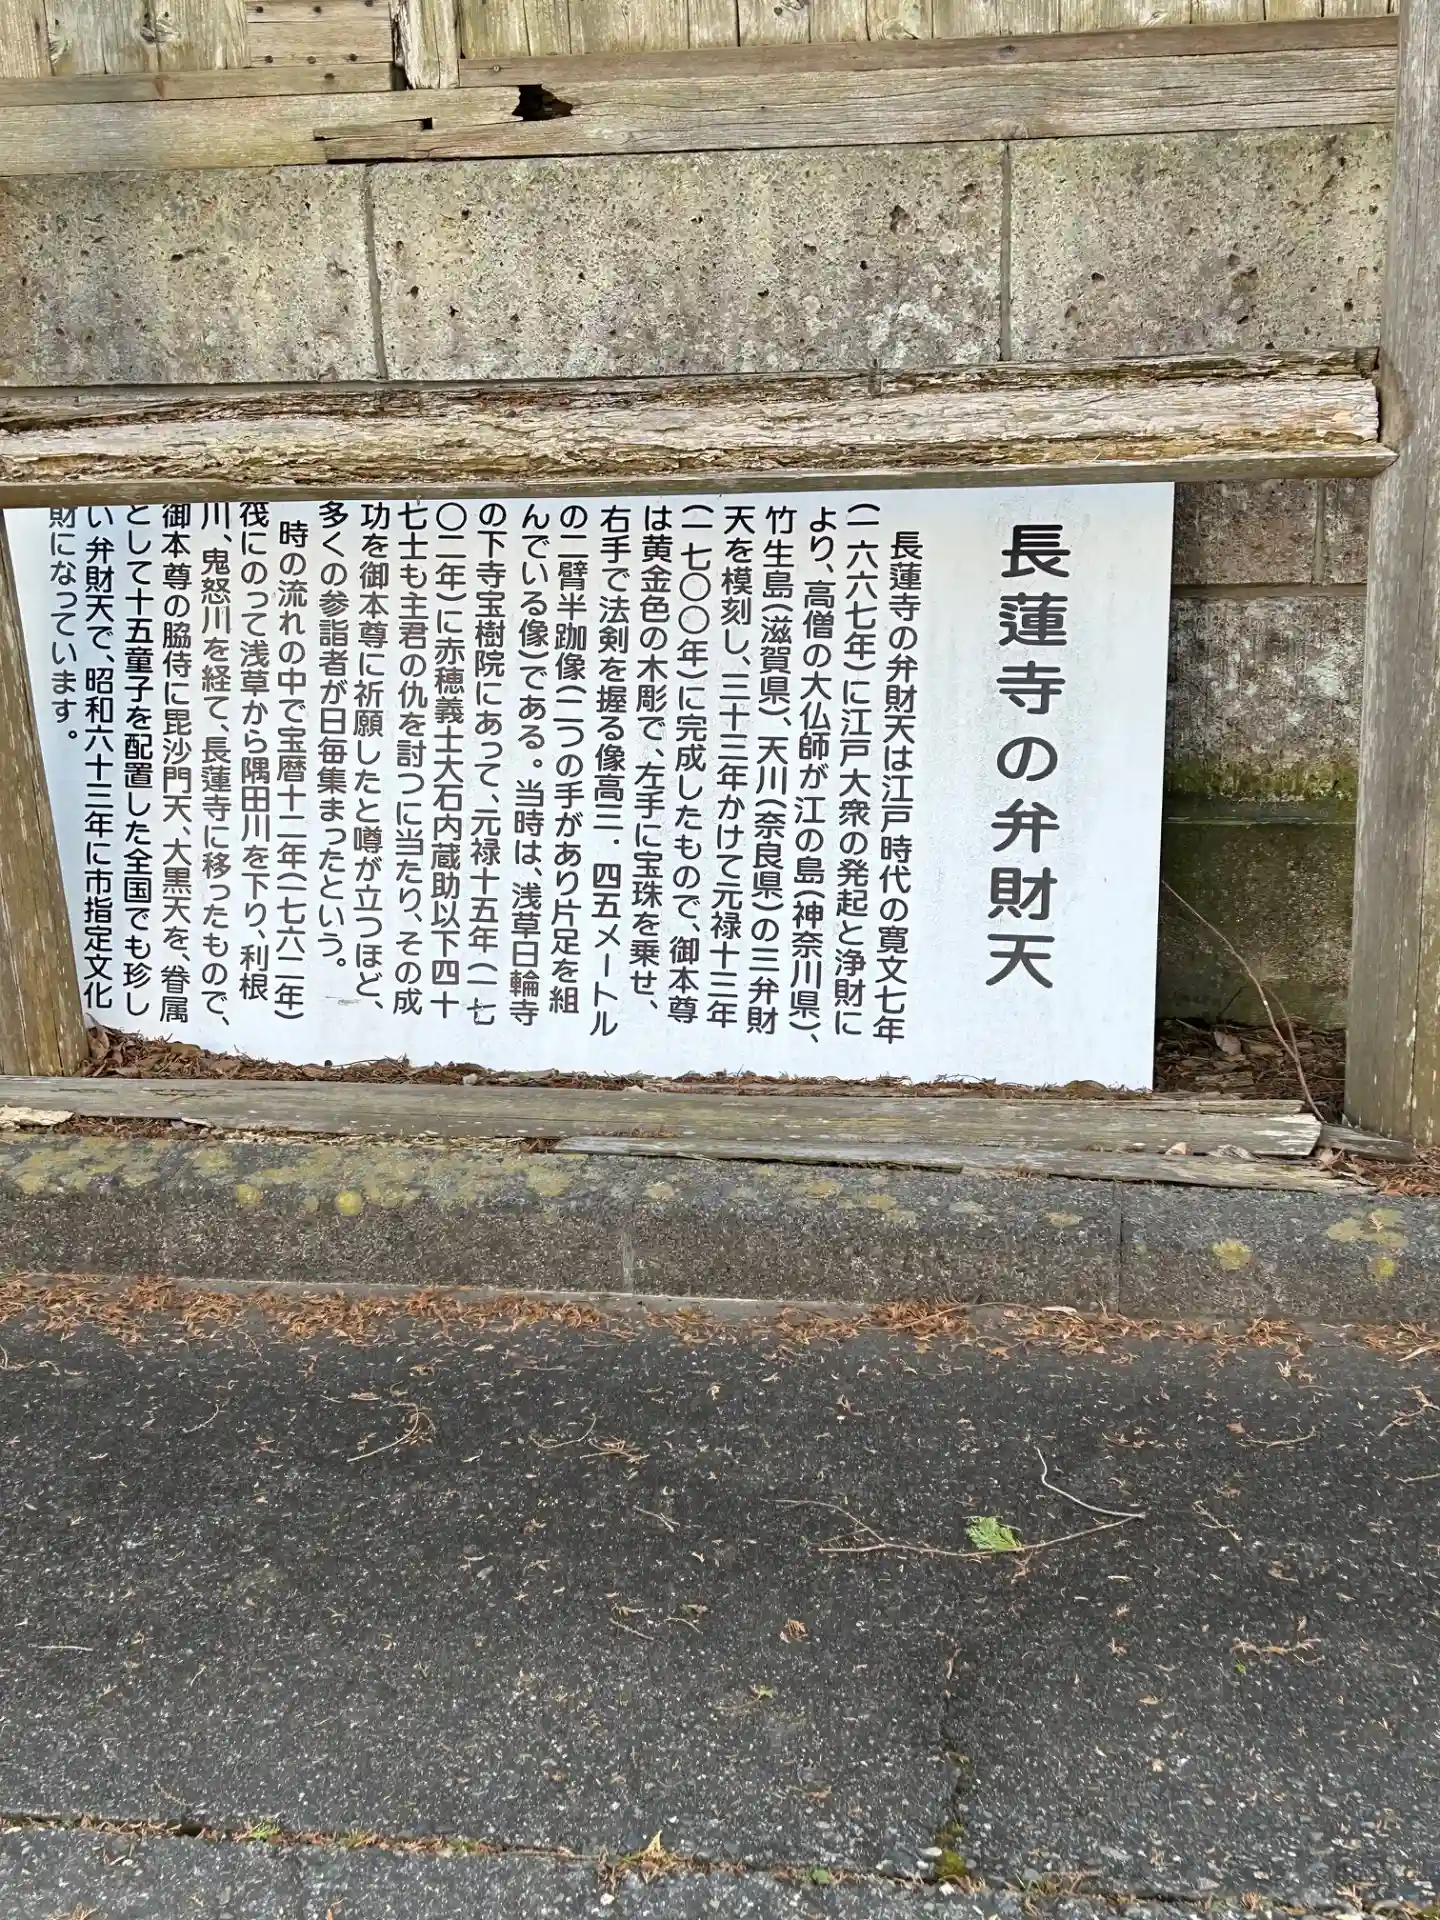 長蓮寺の弁財天
長蓮寺の弁財天は江戸時代の寛文七年
(一六六七年)に江戸大衆の発起と浄財に
より、高僧の大仏師が江の島(神奈川県)、
竹生島(滋賀県)、天川(奈良県)の三弁財
天を模刻し、三十三年かけて元禄十三年
(一七〇〇年)に完成したもので、御本尊
は黄金色の木彫で、左手に宝珠を乗せ、
右手で法剣を握る像高三.四五メートル
の二臂半跏像(二つの手があり片足を組
んでいる像)である。当時は、浅草日輪寺
の下寺宝樹院にあって、元禄十五年(一七
〇二年)に赤穂義士大石内蔵助以下四十
七士も主君の仇を討つに当たり、その成
功を御本尊に祈願したと噂が立つほど、
多くの参詣者が日毎集まったという。
時の流れの中で宝暦十二年(一七六二年)
筏にのって浅草から隅田川を下り、利根
川、鬼怒川を経て、長蓮寺に移ったもので、
御本尊の脇侍に毘沙門天、大黒天を、眷属
として十五童子を配置した全国でも珍し
い弁財天で、昭和六十三年に市指定文化
財になっています。